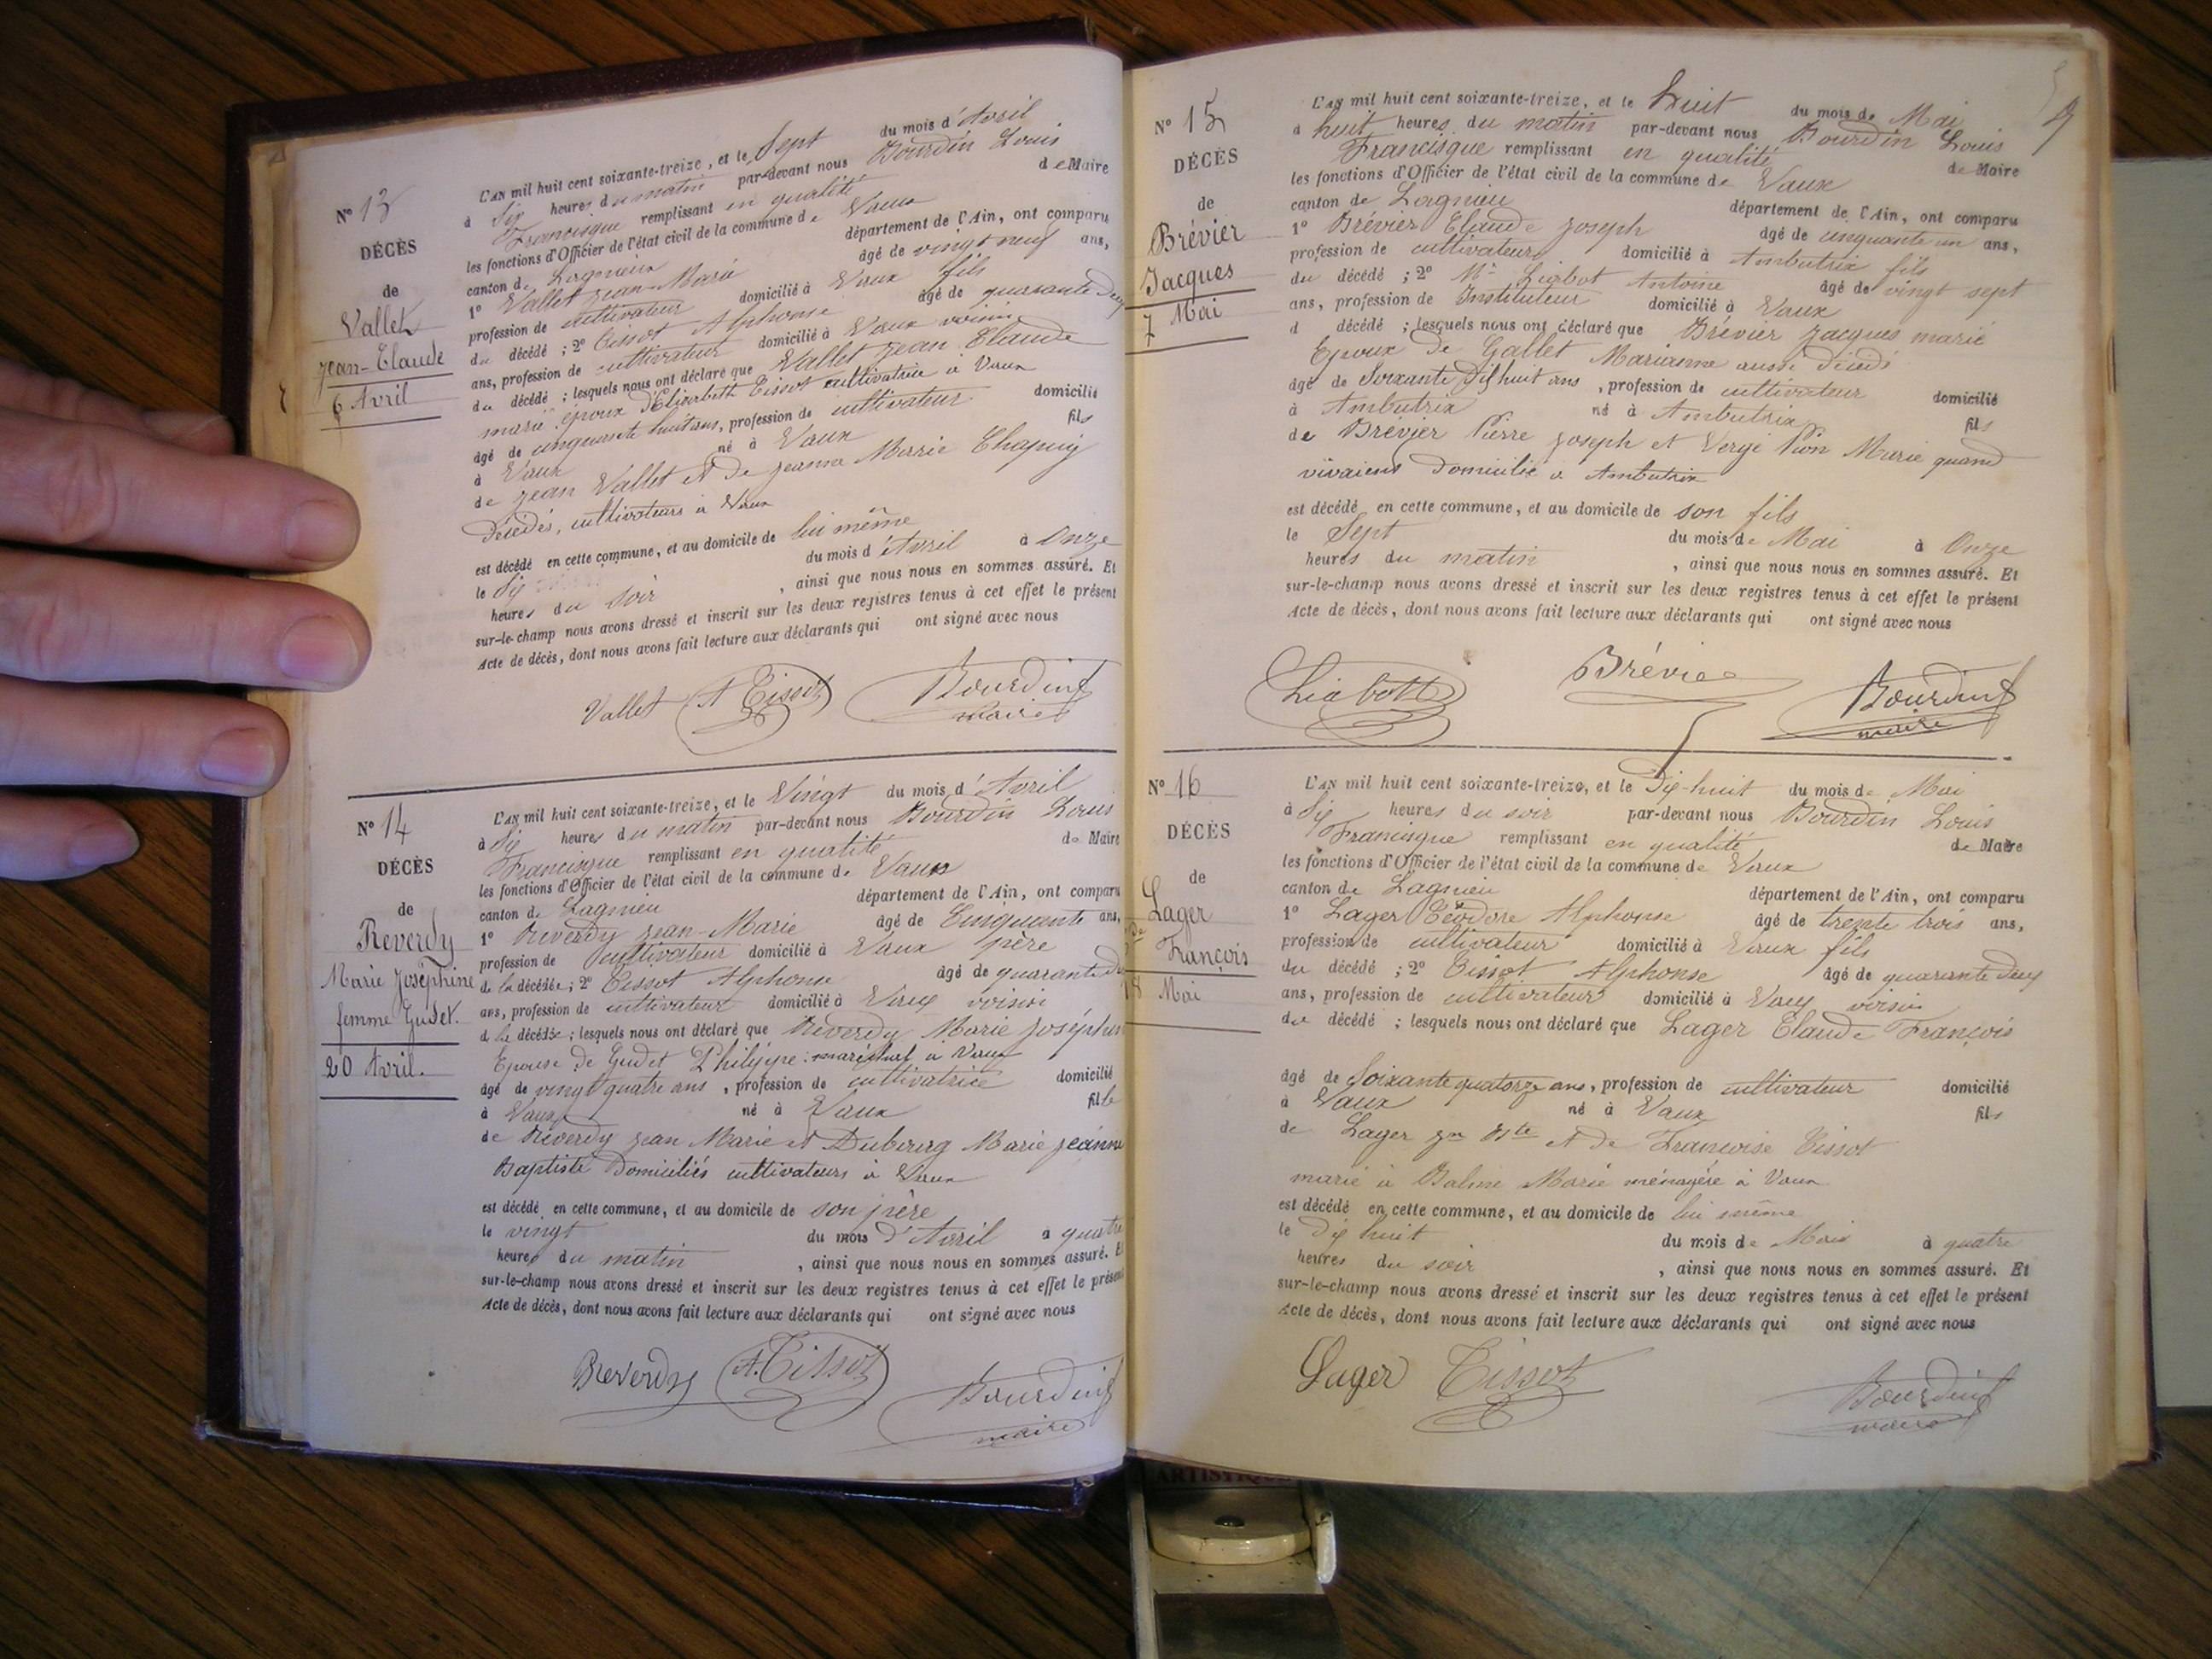 N° 13
DÉCÈS
de
Vallet
Jean-Claude
6 Avril
L'AN mil huit cent soixante-treize, et le Sept du mois d'Avril
à Six heures du matin par-devant nous Bourdin Louis
Francisque remplissant en qualité de Maire
les fonctions d'Officier de l'état civil de la commune de Vaux
canton de Lagnieu département de l'Ain, ont comparu
1° Vallet Jean-Marie âgé de vingt neuf ans,
profession de cultivateur domicilié à Vaux fils
du décédé ; 2° Tissot Alphonse âgé de quarante deux
ans, profession de cultivateur domicilié à Vaux voisin
du décédé ; lesquels nous ont déclaré que Vallet Jean Claude
marié époux d'Elisabeth Tissot cultivatrice à Vaux
âgé de cinquante huit ans, profession de cultivateur domicilié
à Vaux né à Vaux fils
de Jean Vallet et de Jeanne Marie Chapuy
décédés, cultivateurs à Vaux
est décédé en cette commune, et au domicile de lui même
le Six du mois d'Avril à Onze
heures du soir , ainsi que nous nous en sommes assuré. Et
sur-le-champ nous avons dressé et inscrit sur les deux registres tenus à cet effet le présent
Acte de décès, dont nous avons fait lecture aux déclarants qui ont signé avec nous
Vallet A Tissot Bourdin
maire
N° 14
DÉCÈS
de
Reverdy
Marie Joséphine
femme Gudet.
20 Avril.
L'AN mil huit cent soixante-treize, et le Vingt du mois d'Avril
à Six heures du matin par-devant nous Bourdin Louis
Francisque remplissant en qualité de Maire
les fonctions d'Officier de l'état civil de la commune de Vaux
canton de Lagnieu département de l'Ain, ont comparu
1° Reverdy Jean-Marie âgé de Cinquante ans,
profession de cultivateur domicilié à Vaux père
de la décédée ; 2° Tissot Alphonse âgé de quarante
ans, profession de cultivateur domicilié à Vaux voisin
d la décédée ; lesquels nous ont déclaré que Reverdy Marie Joséphine
Epouse de Gudet Philippe : maréchal à Vaux
âgé de vingt quatre ans , profession de cultivatrice domicilié
à Vaux né à Vaux fille
de Reverdy Jean Marie et Dubourg Marie Jeanne
Baptiste domiciliés cultivateurs à Vaux
est décédé en cette commune, et au domicile de son père
le vingt du mois d'Avril à quatre
heures du matin , ainsi que nous nous en sommes assuré. Et
sur-le-champ nous avons dressé et inscrit sur les deux registres tenus à cet effet le présent
Acte de décès, dont nous avons fait lecture aux déclarants qui ont signé avec nous
Reverdy A. Tissot Bourdin
maire
N° 15
DÉCÈS
de
Brévier
Jacques
7 Mai
L'AN mil huit cent soixante-treize, et le huit du mois de Mai
à huit heures du matin par-devant nous Bourdin Louis
Francisque remplissant en qualité de Maire
les fonctions d'Officier de l'état civil de la commune de Vaux
canton de Lagnieu département de l'Ain, ont comparu
1° Brévier Claude Joseph âgé de cinquante un ans,
profession de cultivateur domicilié à Ambutrix fils
du décédé ; 2° Mr Liabot Antoine âgé de vingt sept
ans, profession de Instituteur domicilié à Vaux
d décédé ; lesquels nous ont déclaré que Brévier Jacques marié
Epoux de Gallet Marianne aussi décédé
âgé de Soixante dix huit ans , profession de cultivateur domicilié
à Ambutrix né à Ambutrix fils
de Brévier Pierre Joseph et Vergé Pion Marie quand
vivaient domicilié à Ambutrix
est décédé en cette commune, et au domicile de son fils
le Sept du mois de Mai à Onze
heures du matin , ainsi que nous nous en sommes assuré. Et
sur-le-champ nous avons dressé et inscrit sur les deux registres tenus à cet effet le présent
Acte de décès, dont nous avons fait lecture aux déclarants qui ont signé avec nous
Liabott Brévier Bourdin
maire
N° 16
DÉCÈS
de
Lager
François
18 Mai
L'AN mil huit cent soixante-treize, et le Dix-huit du mois de Mai
à Six heures du soir par-devant nous Bourdin Louis
Francisque remplissant en qualité de Maire
les fonctions d'Officier de l'état civil de la commune de Vaux
canton de Lagnieu département de l'Ain, ont comparu
1° Lager Téodore Alphonse âgé de trente trois ans,
profession de cultivateur domicilié à Vaux fils
du décédé ; 2° Tissot Alphonse âgé de quarante deux
ans, profession de cultivateur domicilié à Vaux voisin
du décédé ; lesquels nous ont déclaré que Lager Claude François
âgé de Soixante quatorze ans, profession de cultivateur domicilié
à Vaux né à Vaux fils
de Lager Jn Bte et de Francoise Tissot
marié à Balme Marie ménagère à Vaux
est décédé en cette commune, et au domicile de lui même
le dix huit du mois de Mai à quatre
heures du soir , ainsi que nous nous en sommes assuré. Et
sur-le-champ nous avons dressé et inscrit sur les deux registres tenus à cet effet le présent
Acte de décès, dont nous avons fait lecture aux déclarants qui ont signé avec nous
Lager Tissot Bourdin
maire
ARTISTIQUE